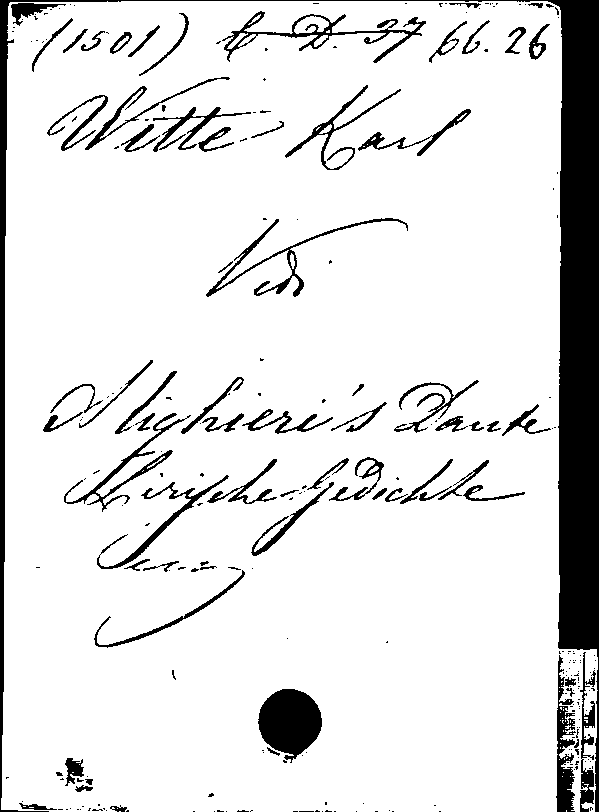 (1501) C. D. 37 66. 26
Witte Karl
Vedi
Alighieri's Dante
Lirische Gedichte